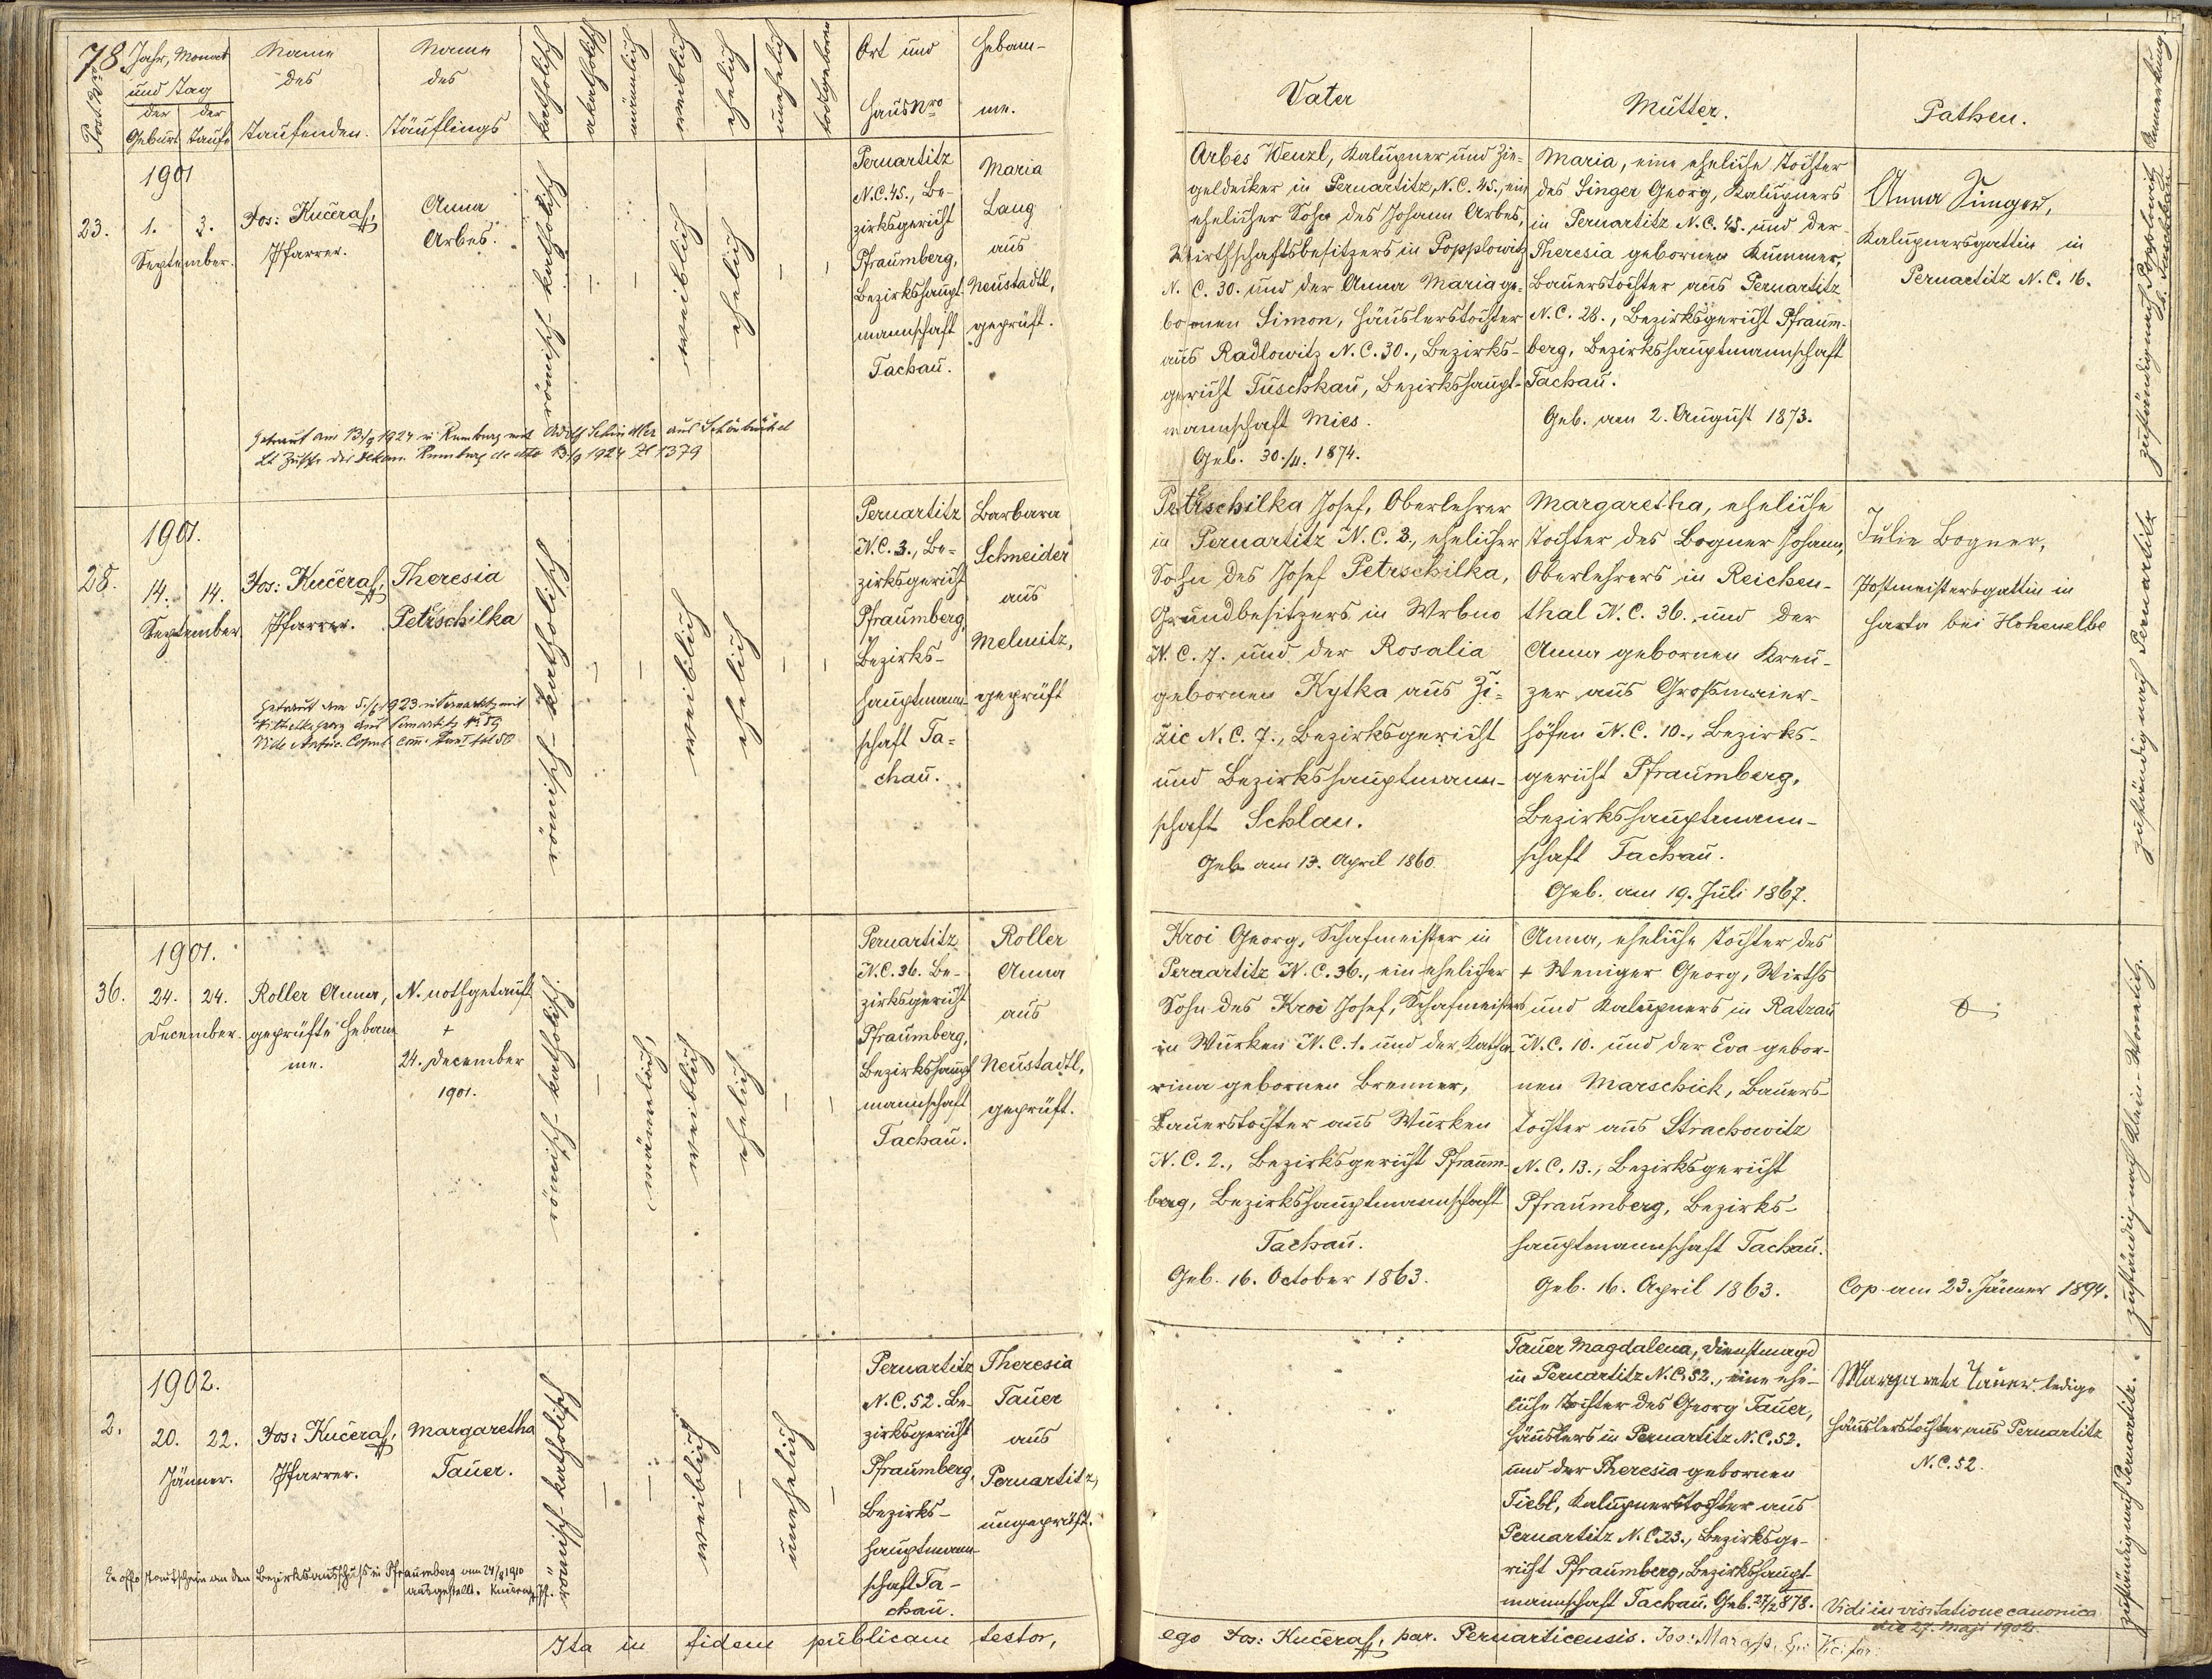 78.
Post Nro
Jahr, Monat
und Tag
der Geburt
der Taufe
Name
des
Taufenden.
Name
des
Täuflings
katholisch
akatholisch
männlich
weiblich
ehelich
unehelich
todtgeboren
Ort und
Haus Nro
Hebam-
me.
Vater
Mutter.
Pathen.
Anmerkung
1901
23.
1. 3.
September.
Jos: Kučera,
Pfarrer.
Anna
Arbes.
römisch-katholisch
weiblich
ehelich
Pernartitz
N.C. 45., Be-
zirksgericht
Pfraumberg,
Bezirkshaupt-
mannschaft
Tachau.
Maria
Lang
aus
Neustadtl,
geprüft.
Arbes Wenzl, Kalupner und Zie-
geldecker in Pernartitz, N.C. 45., ein
ehelicher Sohn des Johann Arbes,
Wirthschaftsbesitzers in Popplowitz
N. C. 30. und der Anna Maria ge-
bornen Simon, Häuslerstochter
aus Radlowitz N. C. 30., Bezirks-
gericht Tuschkau, Bezirkshaupt-
mannschaft Mies.
Geb. 30./4. 1874.
Maria, eine eheliche Tochter
des Singer Georg, Kalupners
in Pernartitz N.C. 45. und der
Theresia gebornen Kummer,
Bauerstochter aus Pernartitz
N.C. 28., Bezirksgericht Pfraum-
berg, Bezirkshauptmannschaft
Tachau.
Geb. am 2. August 1873.
Anna Singer,
Kalupnersgattin in
Pernartitz N. C. 16.
zuständig nach Popplowitz
Getraut am 13/9 1924 in Rumburg mit Adolf Schindler aus Schönbüchel
Lt Zuschr des Dekan. Rumburg de dto 13/9 1924 Zl 1379
1901.
28.
14. 14.
September
Jos: Kučera,
Pfarrer.
Theresia
Petrschilka
römisch-katholisch
weiblich
ehelich
Pernartitz
N.C. 3., Be-
zirksgericht
Pfraumberg,
Bezirks-
hauptmann-
schaft Ta-
chau.
Barbara
Schneider
aus
Melmitz,
geprüft
Petrschilka Josef, Oberlehrer
in Pernartitz N.C. 3., ehelicher
Sohn des Josef Petrschilka,
Grundbesitzers in Wrbno
N.C. 7. und der Rosalia
gebornen Kytka aus Zi-
žic N.C. 7., Bezirksgericht
und Bezirkshauptmann-
schaft Schlan.
Geb. am 13. April 1860
Margaretha, eheliche
Tochter des Bogner Johann,
Oberlehrers in Reichen-
thal N.C. 36. und der
Anna gebornen Kreu-
zer aus Großmaier-
höfen N.C. 10., Bezirks-
gericht Pfraumberg,
Bezirkshauptmann-
schaft Tachau.
Geb. am 19. Juli 1867.
Julie Bogner,
Postmeistersgattin in
Harta bei Hohenelbe
zuständig nach Pernartitz
1901.
36.
24. 24.
December.
Roller Anna,
geprüfte Hebam-
me.
N. nothgetauft
+
24. December
1901.
römisch-katholisch
männlich,
weiblich
ehelich
Pernartitz
N.C. 36. Be-
zirksgericht
Pfraumberg,
Bezirkshaupt-
mannschaft
Tachau.
Roller
Anna
aus
Neustadtl,
geprüft.
Kroi Georg, Schafmeister in
Pernartitz N.C. 36., ein ehelicher
Sohn des Kroi Josef, Schafmeisters
in Wurken N.C. 1. und der Katha-
rina gebornen Brenner,
Bauerstochter aus Wurken
N.C. 2., Bezirksgericht Pfraum-
berg, Bezirkshauptmannschaft
Tachau.
Geb. 16. October 1863.
Anna, eheliche Tochter des
+ Weniger Georg, Wirths
und Kalupners in Ratzau
N.C. 10. und der Eva gebor-
nen Marschick, Bauers-
tochter aus Strachowitz
N.C. 13., Bezirksgericht
Pfraumberg, Bezirks-
hauptmannschaft Tachau.
Geb. 16. April 1863.
Cop. am 23. Jänner 1894.
zuständig nach Klein-Wonetitz.
1902.
2.
20. 22.
Jänner.
Jos: Kučera,
Pfarrer.
Margaretha
Tauer.
römisch-katholisch
weiblich
unehelich
Pernartitz
N.C. 52. Be-
zirksgericht
Pfraumberg,
Bezirks-
hauptmann-
schaft Ta-
chau.
Theresia
Tauer
aus
Pernartitz,
ungeprüft.
Tauer Magdalena, Dienstmagd
in Pernartitz N.C. 52., eine ehe-
liche Tochter des Georg Tauer,
Häuslers in Pernartitz N.C. 52.
und der Theresia gebornen
Tiebl, Kalupnerstochter aus
Pernartitz N.C. 23., Bezirksge-
richt Pfraumberg, Bezirkshaupt-
mannschaft Tachau. Geb. 27/2 878.
Margareta Tauer ledige
Häuslerstochter aus Pernartitz
N.C. 52.
zuständig nach Pernartitz.
Ex offo Taufschein an den Bezirksausschuß in Pfraumberg am 24/8 1910
ausgestellt. Kučera, Pf.
Vidi in visitatione canonica
die 27. Maji 1902.
Ita in fidem publicam testor,
ego Jos: Kučera, par. Pernarticensis.